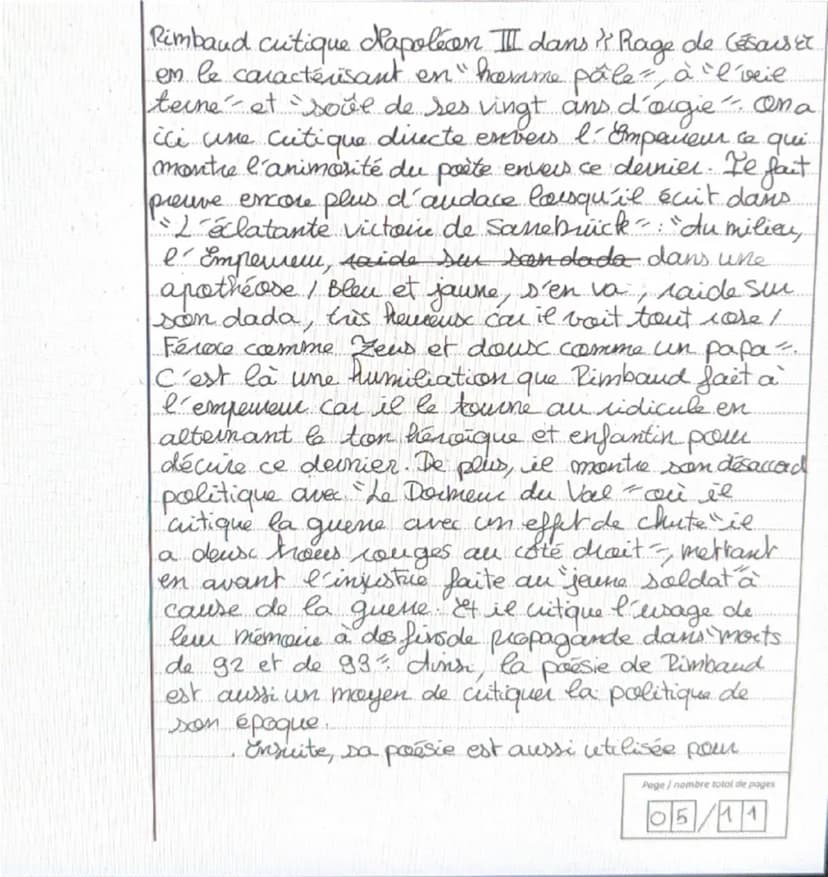 Rimbaud critique Napoléon III dans "Rage de Césars et
en le caractérisant en "homme pâle", à "l'oeil
terne" et "soûl de ses vingt ans d'orgie". On a
ici une critique directe envers l'Empereur ce qui
montre l'animosité du poète envers ce dernier. Il fait
preuve encore plus d'audace lorsqu'il écrit dans
"L'éclatante victoire de Sarrebrück" : "du milieu,
l'Empereur, raide sur son dada dans une
apothéose / Bleu et jaune, s'en va, raide sur
son dada, très heureux car il voit tout rose /
Féroce comme Zeus et doux comme un papa".
C'est là une humiliation que Rimbaud fait à
l'empereur car il le tourne au ridicule en
alternant le ton héroïque et enfantin pour
décrire ce dernier. De plus, il montre son désaccord
politique avec "Le Dormeur du Val" où il
critique la guerre avec un effet de chute "il
a deux trous rouges au côté droit", mettant
en avant l'injustice faite au "jeune soldat" à
cause de la guerre. Et il critique l'usage de
leur mémoire à des fins de propagande dans "morts
de 92 et de 93". Ainsi, la poésie de Rimbaud
est aussi un moyen de critiquer la politique de
son époque.
Ensuite, sa poésie est aussi utilisée pour
Page / nombre total de pages
05/11